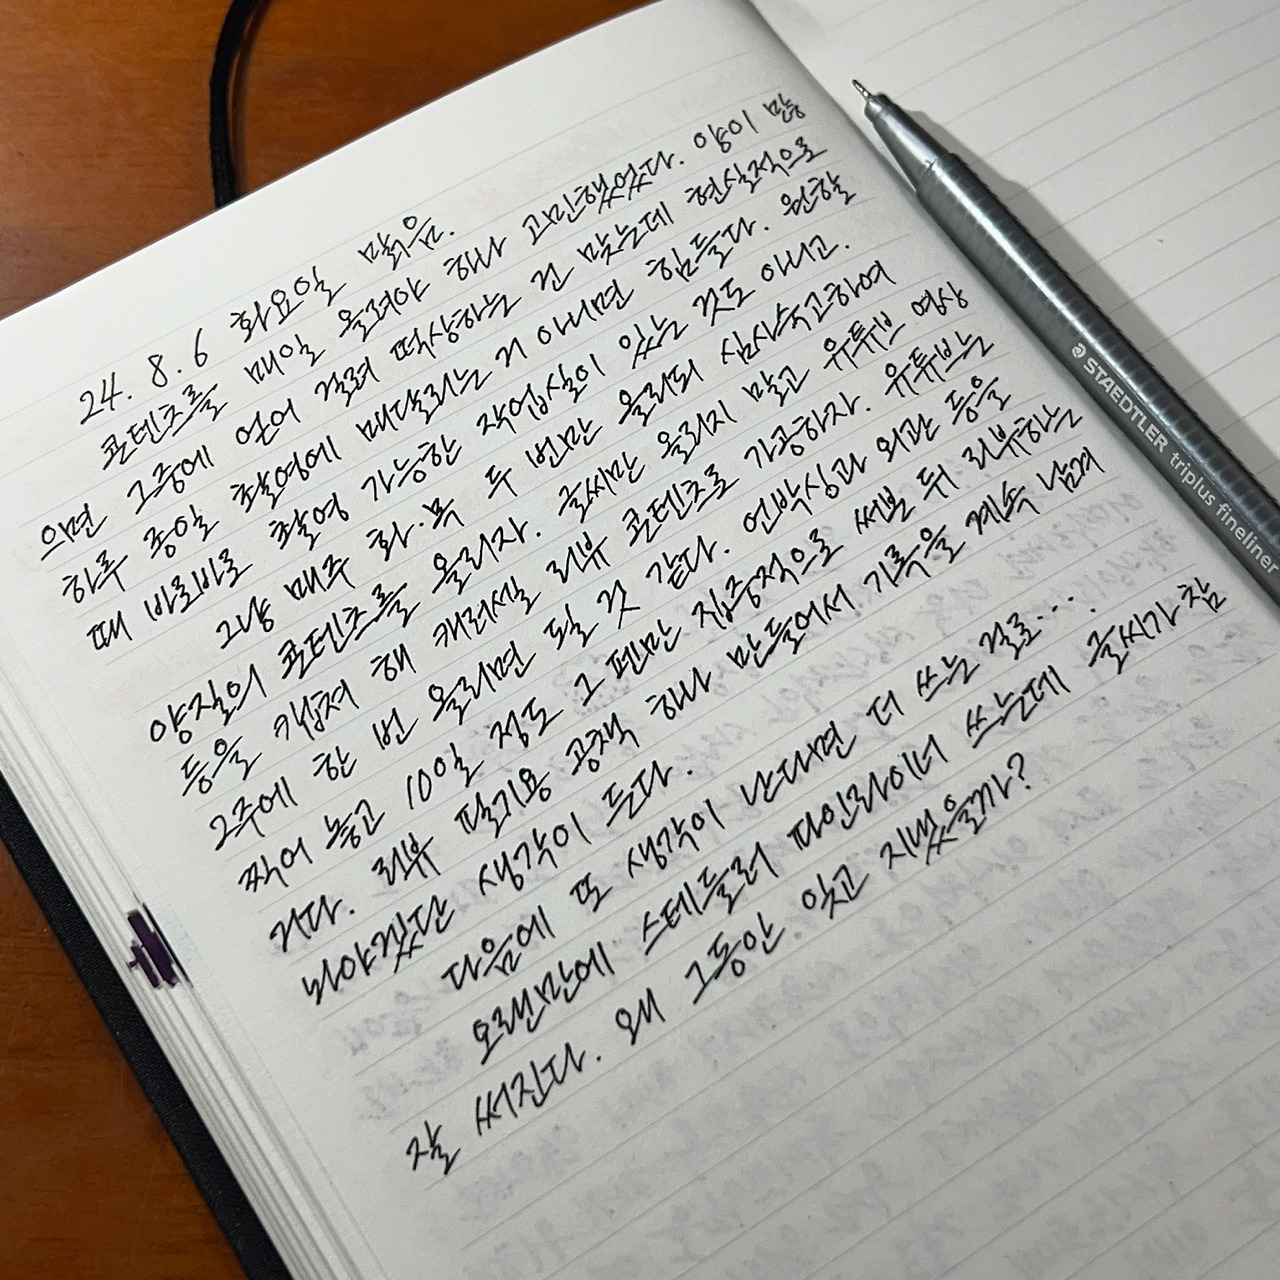 24. 8. 6 화요일 맑음.
콘텐츠를 매일 올려야 하나 고민했었다. 양이 많
으면 그중에 얻어 걸려 떡상하는 건 맞는데 현실적으로
하루 종일 촬영에 매달리는 거 아니면 힘들다. 원할
때 바로바로 촬영 가능한 작업실이 있는 것도 아니고.
그냥 매주 화·목 두 번만 올리되 심사숙고하여
양질의 콘텐츠를 올리자. 글씨만 올리지 말고 유튜브 영상
등을 캡쳐 해 캐러셀 리뷰 콘텐츠로 가공하자. 유튜브는
2주에 한 번 올리면 될 것 같다. 언박싱과 외관 등을
찍어 놓고 10일 정도 그 펜만 집중적으로 써본 뒤 리뷰하는
거다. 리뷰 필기용 공책 하나 만들어서 기록을 계속 남겨
놔야겠단 생각이 든다.
다음에 또 생각이 난다면 더 쓰는 걸로...
오랜만에 스테들러 파인라이너 쓰는데 글씨가 참
잘 써진다. 왜 그동안 잊고 지냈을까?
STAEDTLER triplus fineliner